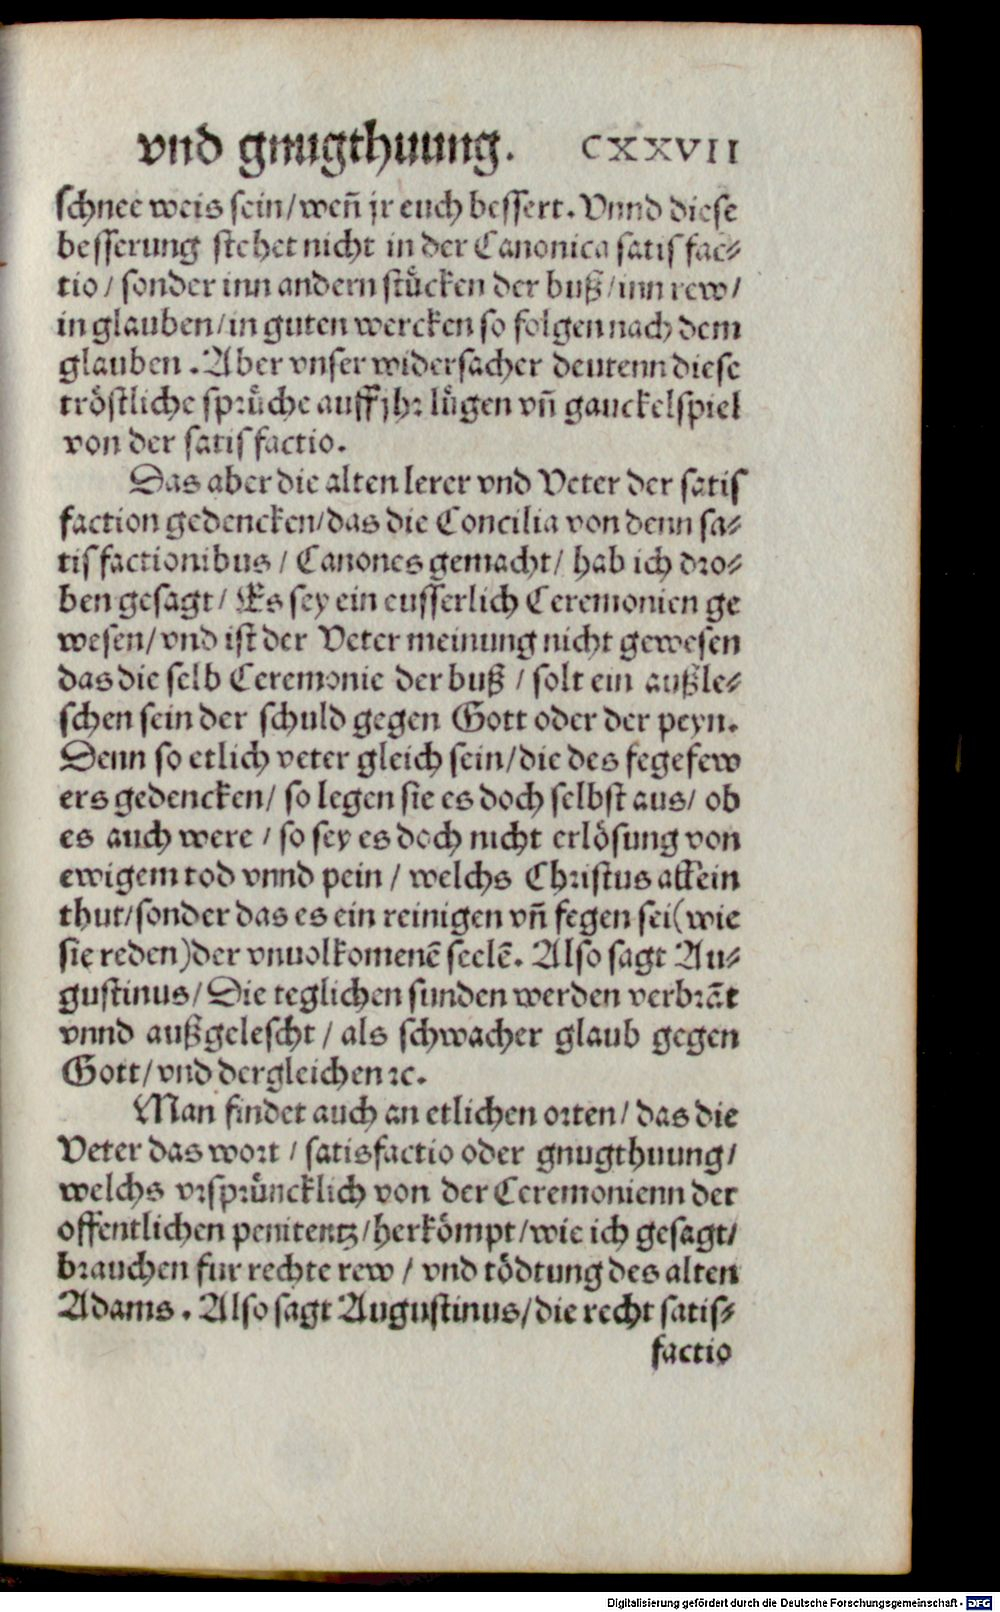 vnd gnugthuung. CXXVII
schnee weis sein/ weñ jr euch bessert. Vnnd diese
besserung stehet nicht in der Canonica satisfac⸗
tio / sonder inn andern stůcken der buß / inn rew /
in glauben / in guten wercken so folgen nach dem
glauben. Aber vnser widersacher deutenn diese
tröstliche sprůche auff jhr lůgen vñ gauckelspiel
von der satisfactio.
Das aber die alten lerer vnd Veter der satis
faction gedencken/ das die Concilia von denn sa⸗
tisfactionibus / Canones gemacht/ hab ich dro⸗
ben gesagt/ Es sey ein eusserlich Ceremonien ge
wesen/ vnd ist der Veter meinung nicht gewesen
das die selb Ceremonie der buß / solt ein außle⸗
schen sein der schuld gegen Gott oder der peyn.
Denn so etlich veter gleich sein/ die des fegefew
ers gedencken/ so legen sie es doch selbst aus/ ob
es auch were / so sey es doch nicht erlösung von
ewigem tod vnnd pein / welchs Christus allein
thut/ sonder das es ein reinigen vñ fegen sei (wie
sie reden) der vnuolkomenē seelē. Also sagt Au⸗
gustinus/ Die teglichen sunden werden verbrāt
vnnd außgelescht / als schwacher glaub gegen
Gott/ vnd dergleichen ꝛc.
Man findet auch an etlichen orten/ das die
Veter das wort / satisfactio oder gnugthuung/
welchs vrsprůncklich von der Ceremonienn der
offentlichen penitentz/ herkömpt/ wie ich gesagt/
brauchen fur rechte rew / vnd tödtung des alten
Adams. Also sagt Augustinus/ die recht satis⸗
factio
Digitalisierung gefördert durch die Deutsche Forschungsgemeinschaft - DFG